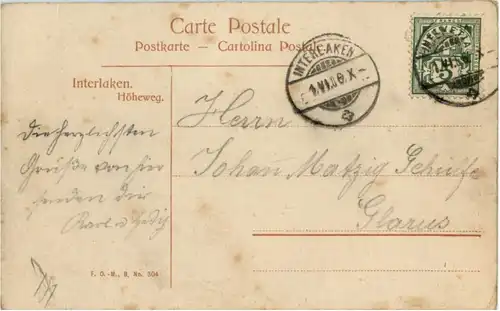 Carte Postale
Postkarte — Cartolina Postale
INTERLAKEN
HELVETIA
Interlaken.
Höheweg.
Die herzlichsten
Grüße von hier
senden dir
Karl u.
Herrn
Johan Matzig
Glarus
F. O.-M., B, No. 504